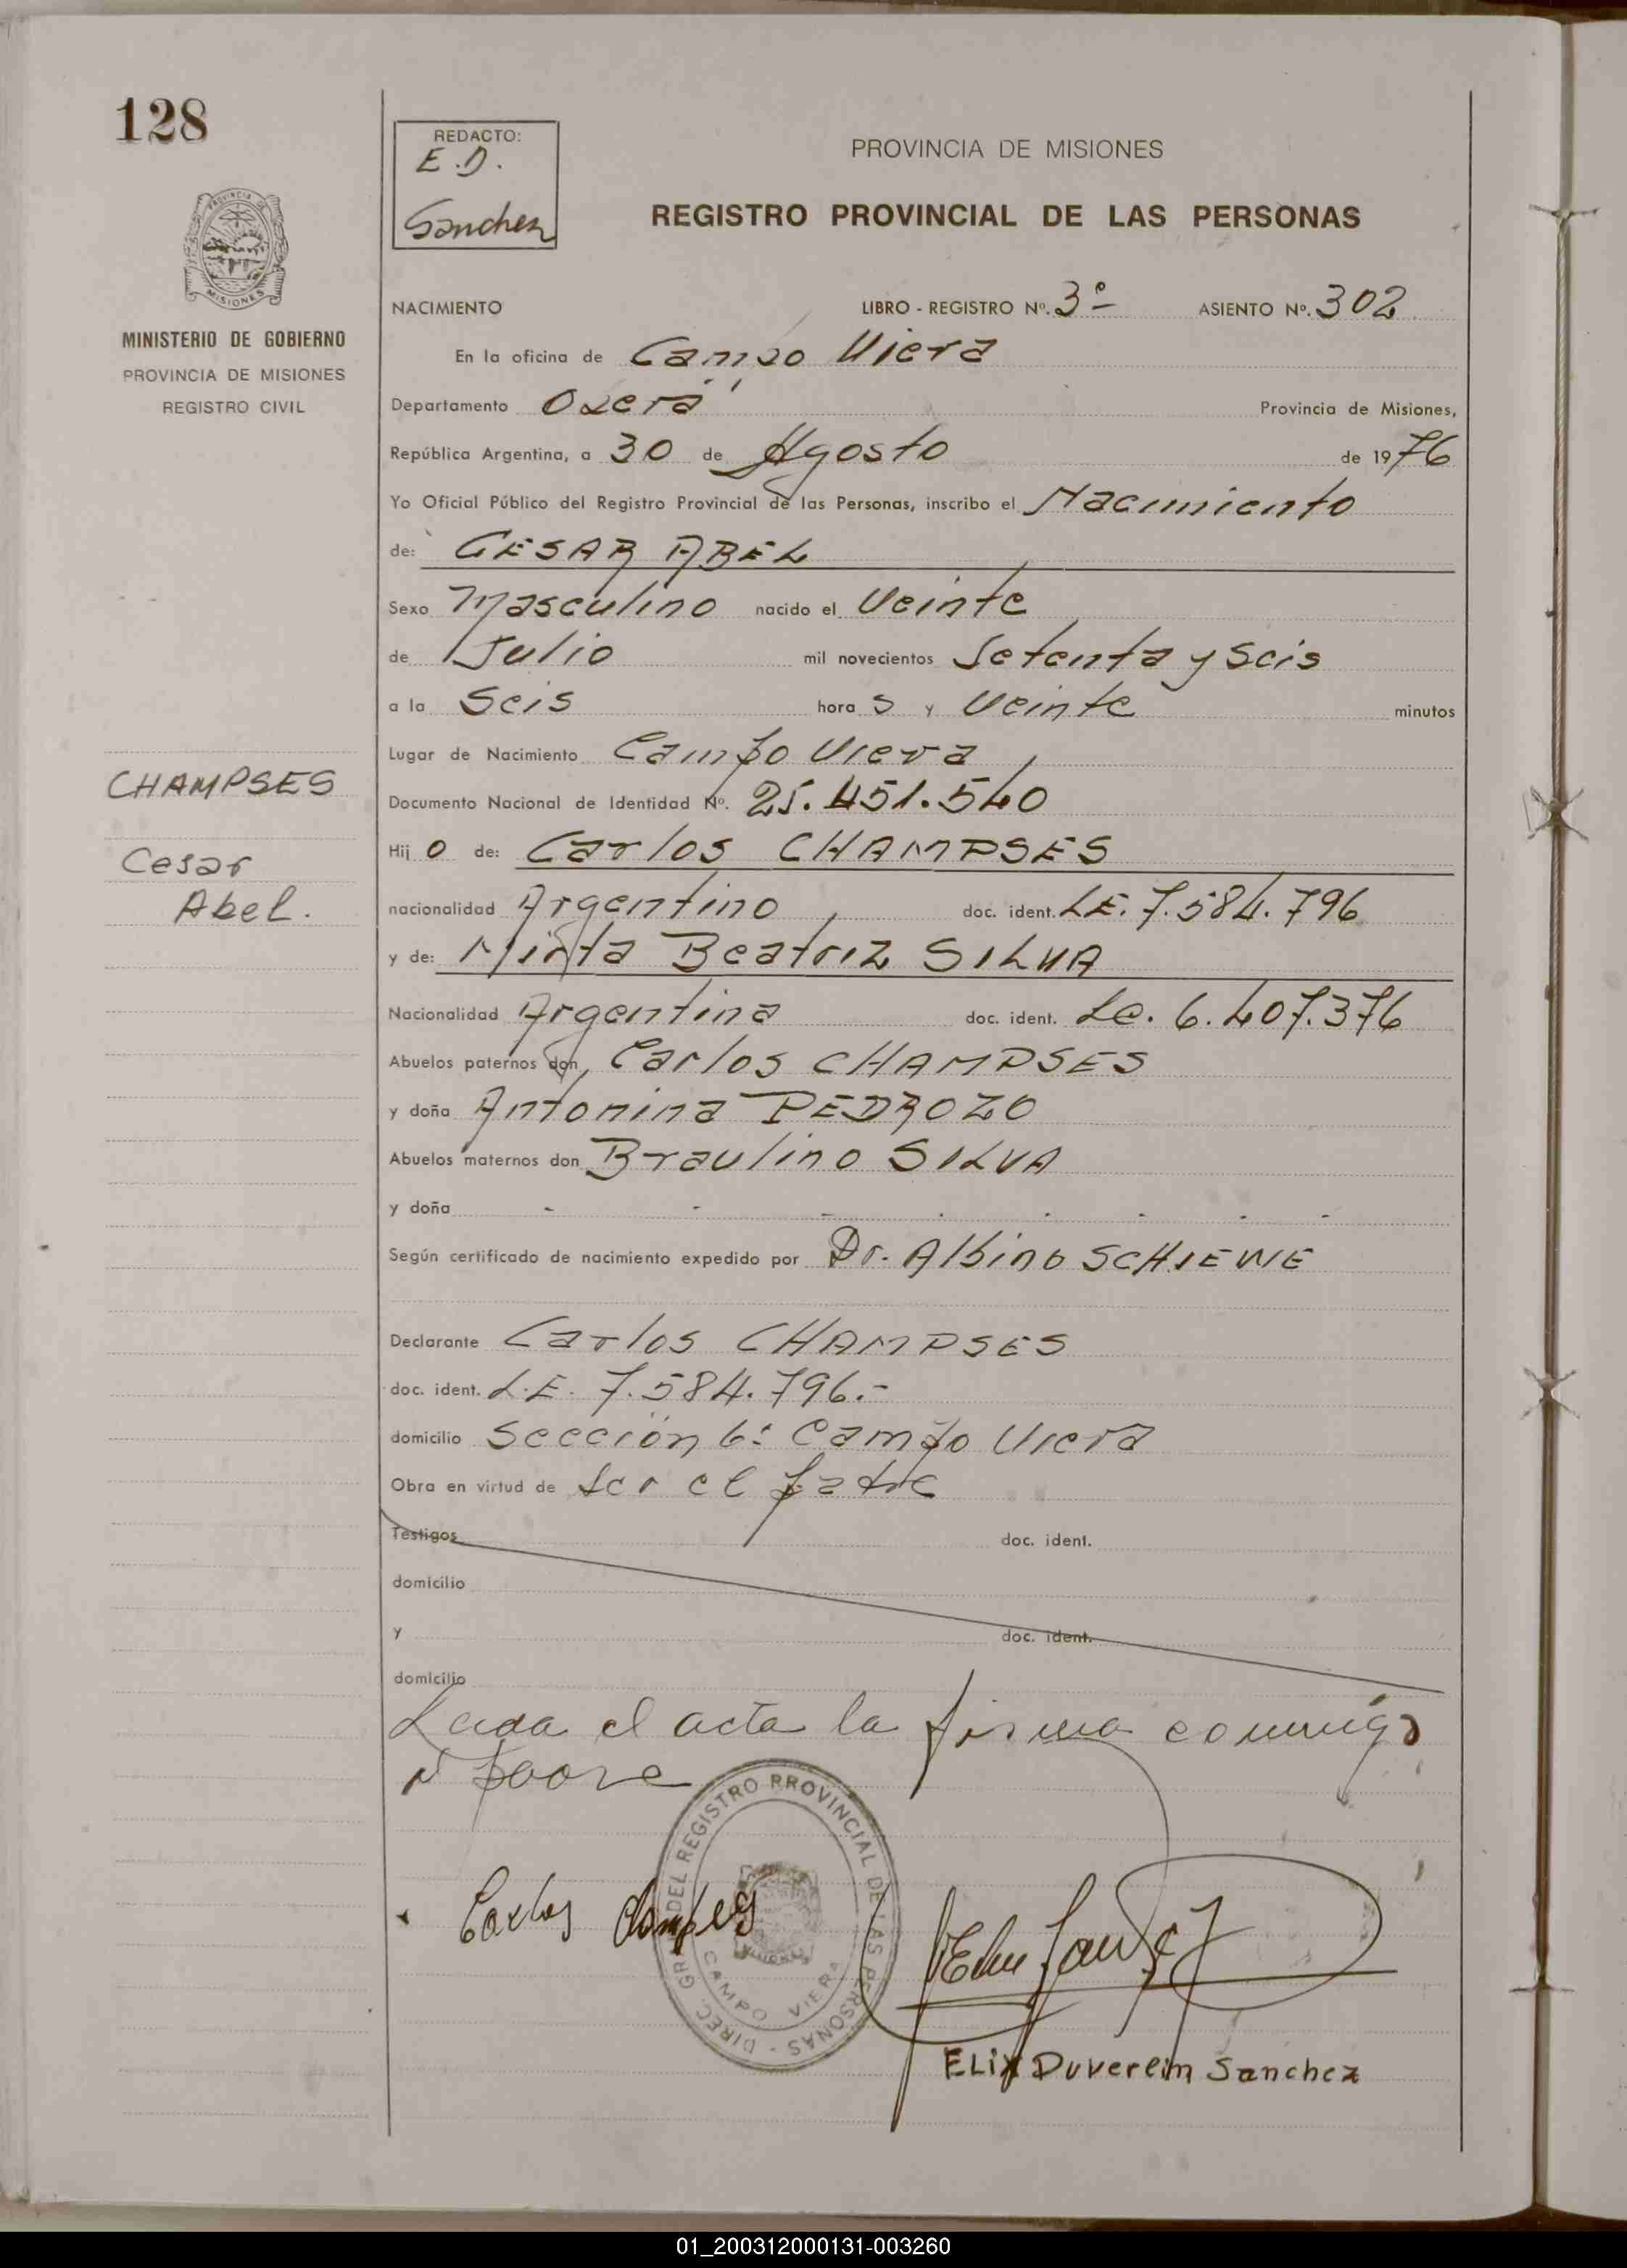 128
REDACTO:
E.D.
Sanchez
PROVINCIA DE MISIONES
REGISTRO PROVINCIAL DE LAS PERSONAS
PROVINCIA DE
MISIONES
MINISTERIO DE GOBIERNO
PROVINCIA DE MISIONES
REGISTRO CIVIL
NACIMIENTO LIBRO - REGISTRO Nº. 3º ASIENTO Nº. 302
En la oficina de Campo Viera
Departamento Oberá Provincia de Misiones,
República Argentina, a 30 de Agosto de 1976
Yo Oficial Público del Registro Provincial de las Personas, inscribo el Nacimiento
de: CESAR ABEL
Sexo Masculino nacido el Veinte
de Julio mil novecientos Setenta y Seis
a la Seis hora s y Veinte minutos
Lugar de Nacimiento Campo Viera
CHAMPSES
Cesar
Abel.
Documento Nacional de Identidad Nº. 25.451.540
Hij o de: Carlos CHAMPSES
nacionalidad Argentino doc. ident. LE. 7.584.796
y de: Mirta Beatriz SILVA
Nacionalidad Argentina doc. ident. Lc. 6.407.376
Abuelos paternos don, Carlos CHAMPSES
y doña Antonina PEDROZO
Abuelos maternos don Braulino SILVA
y doña - - - - - - - -
Según certificado de nacimiento expedido por Dr. Albino SCHIEWE
Declarante Carlos CHAMPSES
doc. ident. L.E. 7.584.796.-
domicilio Sección 6: Campo Viera
Obra en virtud de Ser el padre
Testigos doc. ident.
domicilio
y doc. ident.
domicilio
Leida el acta la firma conmigo
el padre
DIREC. GRAL. DEL REGISTRO PROVINCIAL DE LAS PERSONAS -
CAMPO VIERA
Carlos
ELIX Duverlin Sanchez
01_200312000131-003260